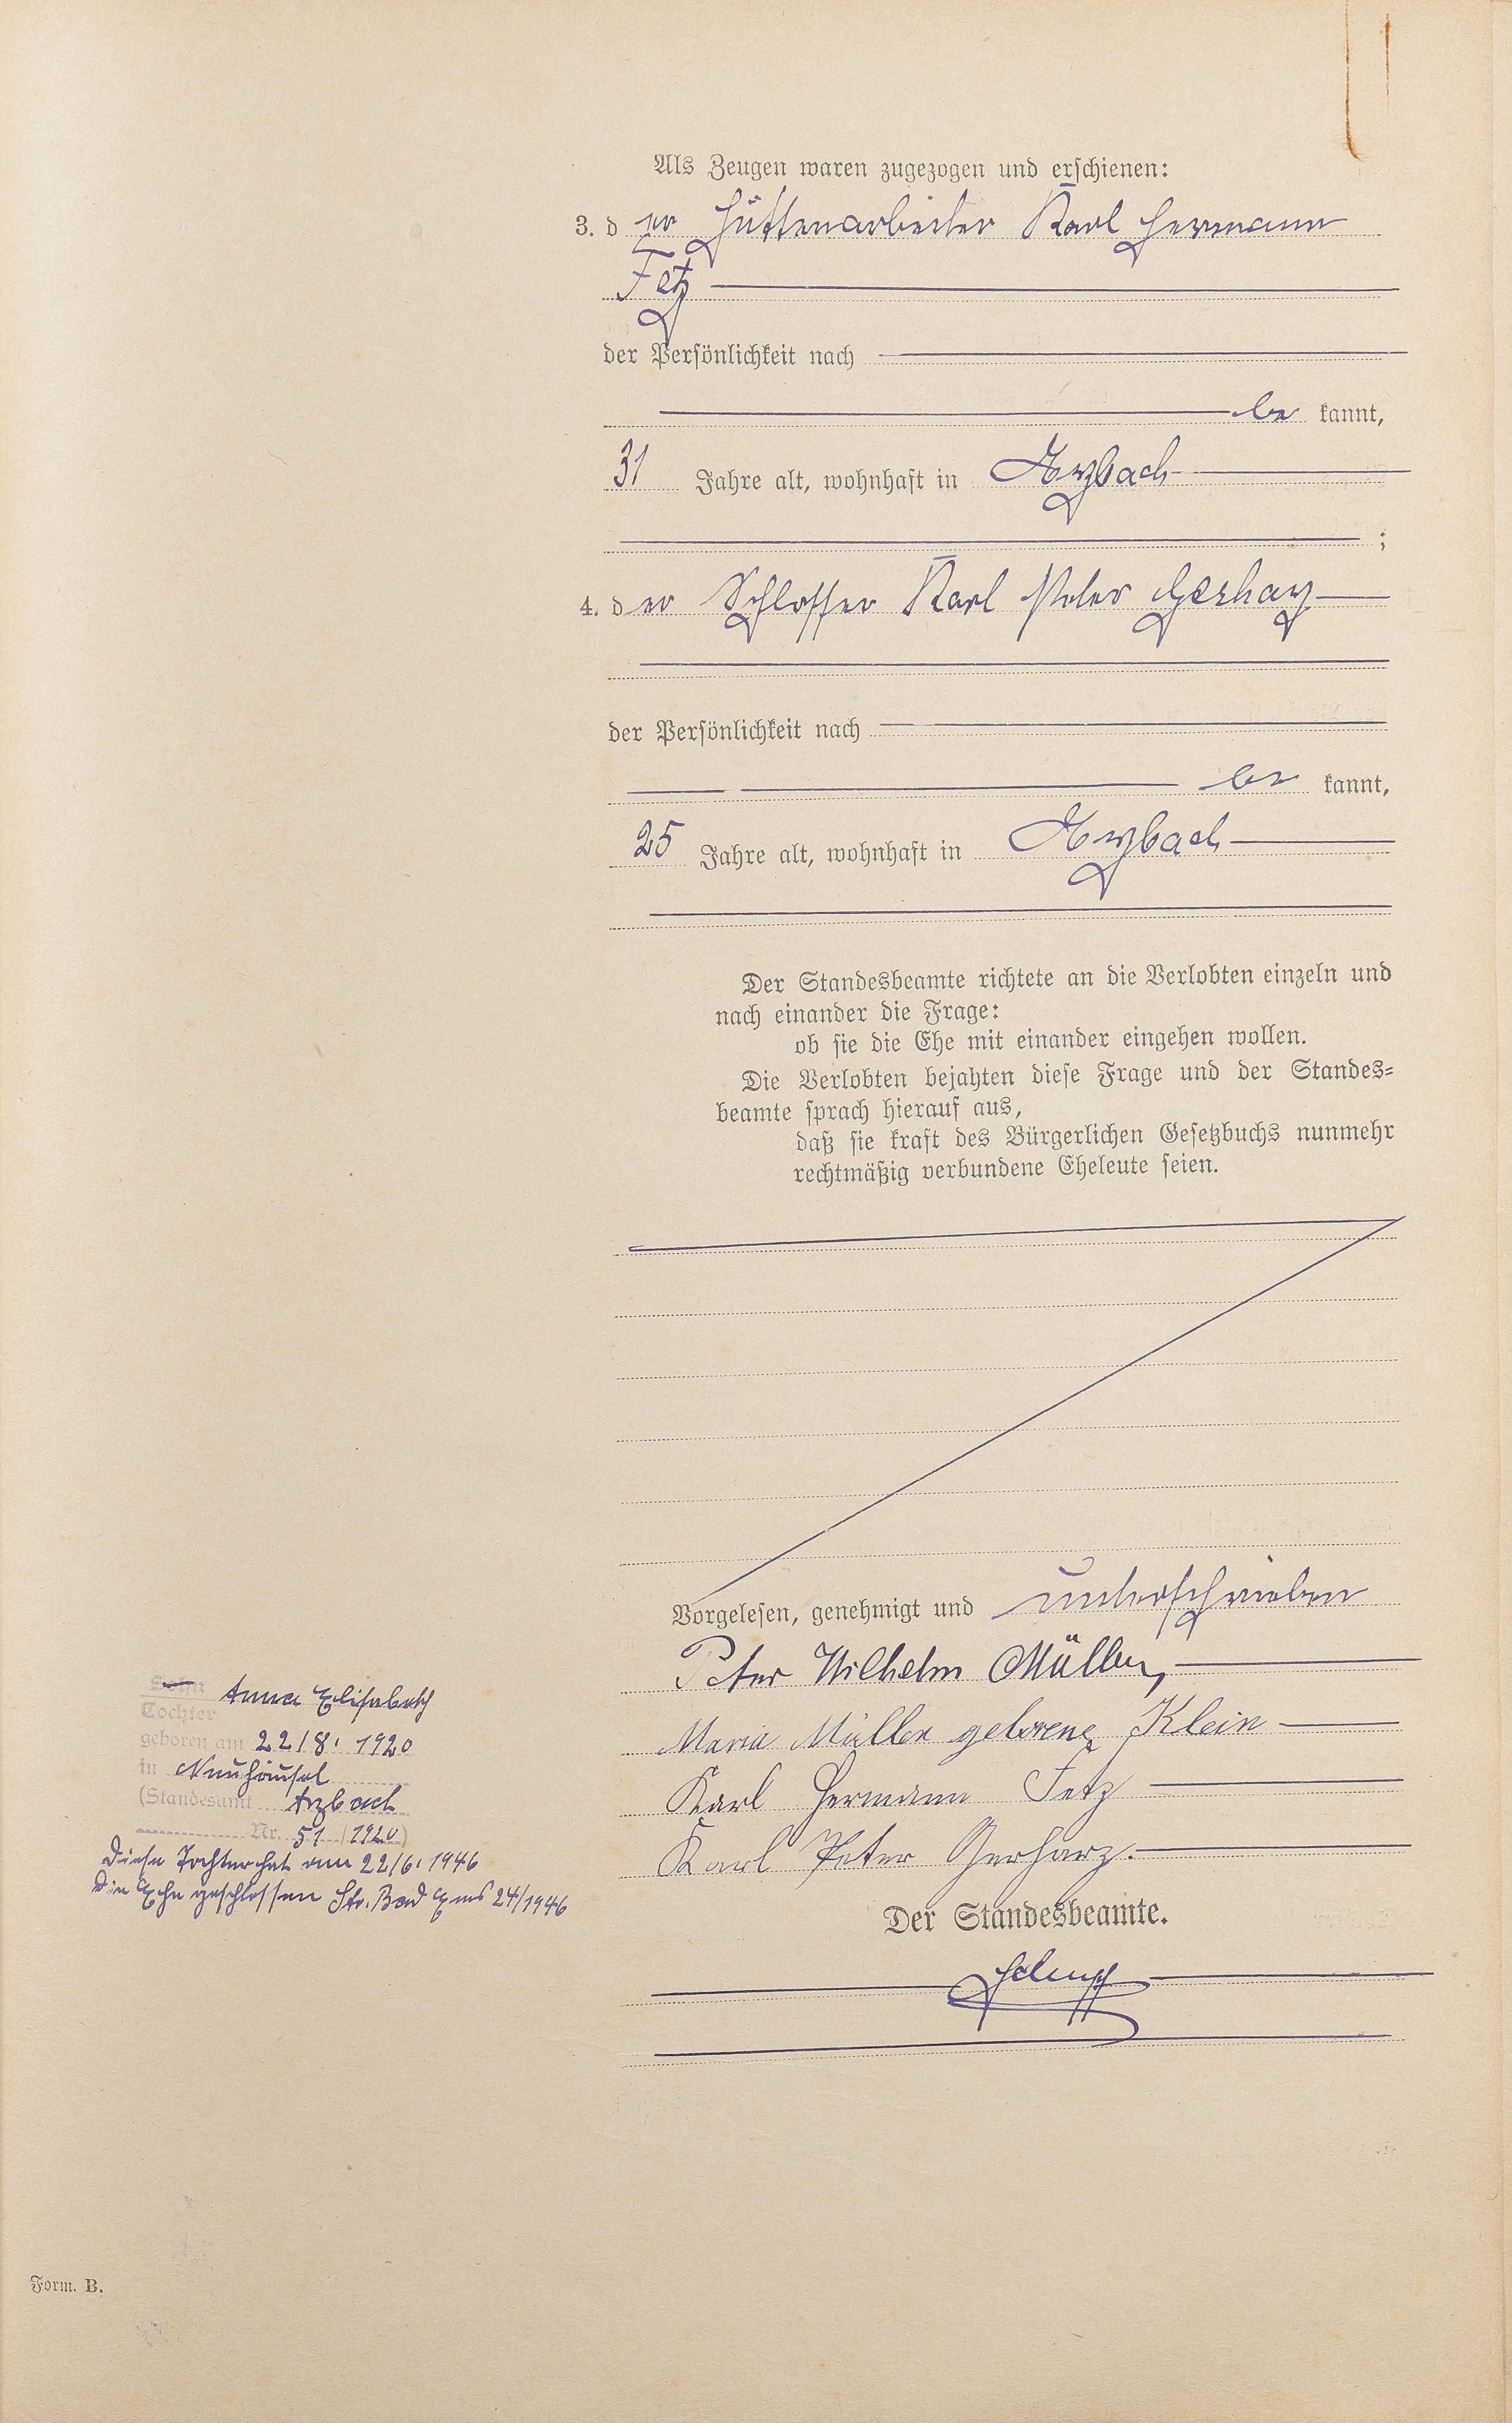 Als Zeugen waren zugezogen und erschienen:
3. der Hüttenarbeiter Karl Hermann
Fetz
der Persönlichkeit nach
be kannt,
31 Jahre alt, wohnhaft in Arzbach
;
4. der Schlosser Karl Peter Gerharz
der Persönlichkeit nach
be kannt,
25 Jahre alt, wohnhaft in Arzbach
Der Standesbeamte richtete an die Verlobten einzeln und
nach einander die Frage:
ob sie die Ehe mit einander eingehen wollen.
Die Verlobten bejahten diese Frage und der Standes-
beamte sprach hierauf aus,
daß sie kraft des Bürgerlichen Gesetzbuchs nunmehr
rechtmäßig verbundene Eheleute seien.
Vorgelesen, genehmigt und unterschrieben
Peter Wilhelm Müller,
Maria Müller geborene Klein
Karl Hermann Fetz
Karl Peter Gerharz.
Der Standesbeamte.
Sohn Anna Elisabeth
Tochter
geboren am 22/8. 1920
in Neuhäusel
(Standesamt Arzbach
Nr. 51/1920)
Diese Tochter hat am 22/6. 1946
die Ehe geschlossen Sta. Bad Ems 24/1946
Form. B.